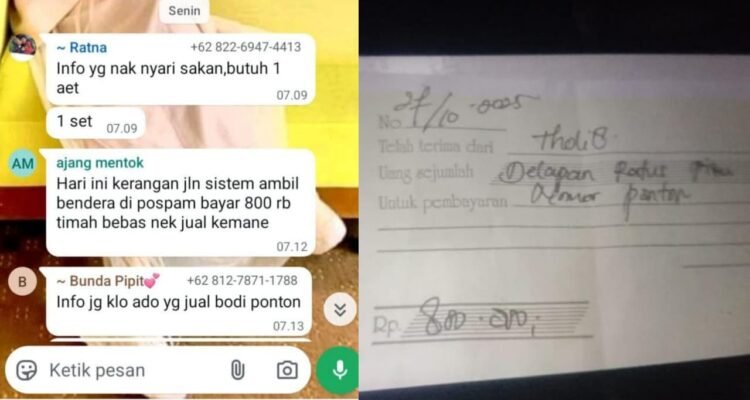 Senin
~ Ratna +62 822-6947-4413
Info yg nak nyari sakan,butuh 1
aet
07.09
1 set 07.09
AM ajang mentok
Hari ini kerangan jln sistem ambil
bendera di pospam bayar 800 rb
timah bebas nek jual kemane
07.12
B ~ Bunda Pipit💕 +62 812-7871-1788
Info jg klo ado yg jual bodi ponton
07.13
Ketik pesan
No. 27/10-2025
Telah terima dari Tholib.
Uang sejumlah Delapan Ratus
Untuk pembayaran Nomor ponton
Rp. 800.000,